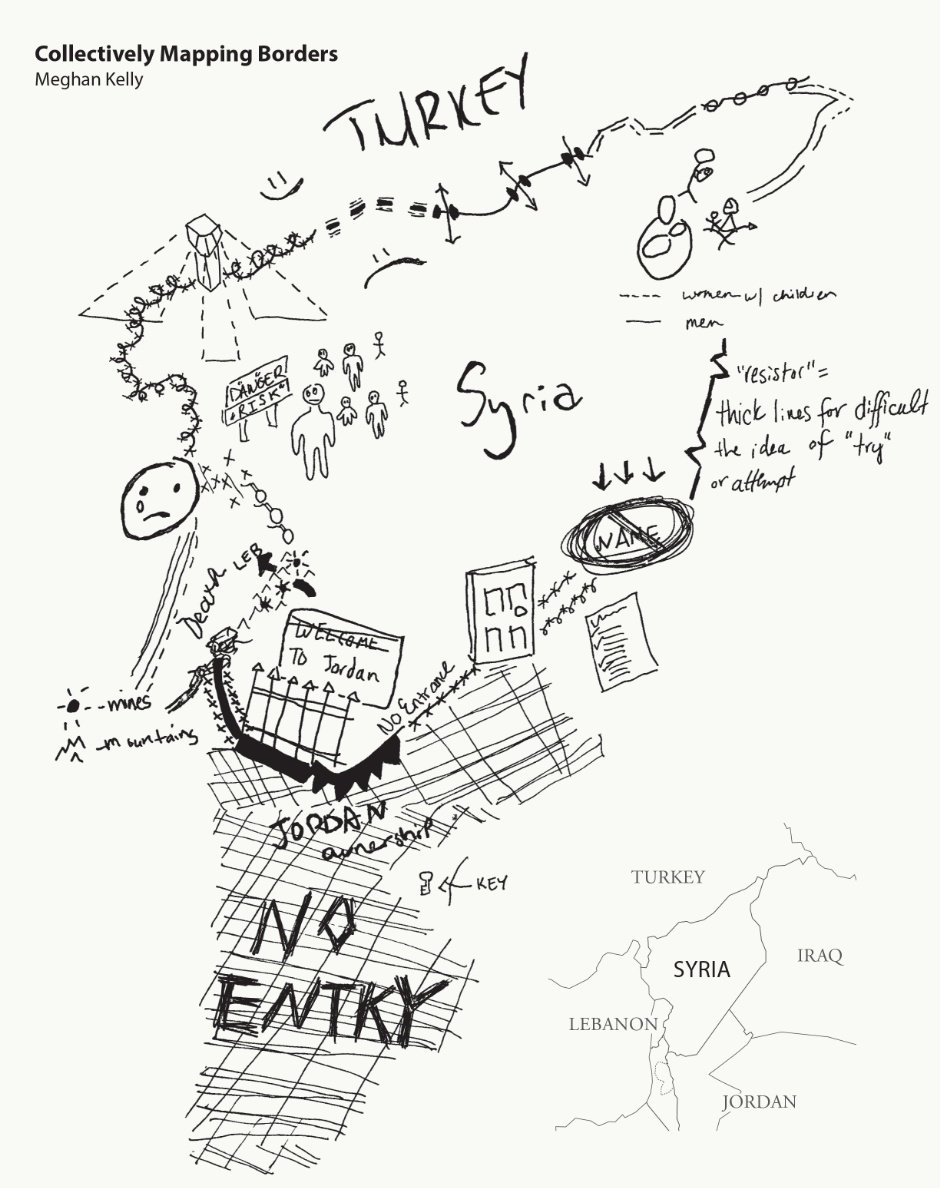 Collectively Mapping Borders
Meghan Kelly
TURKEY
women w/ children
men
"resistor"=
thick lines for difficult
the idea of "try"
or attempt
DANGER
RISK
Syria
NAME
LEB
Death
WELCOME
TO Jordan
No Entrance
mines
mountains
JORDAN
ownership
KEY
NO
ENTRY
TURKEY
SYRIA
IRAQ
LEBANON
JORDAN